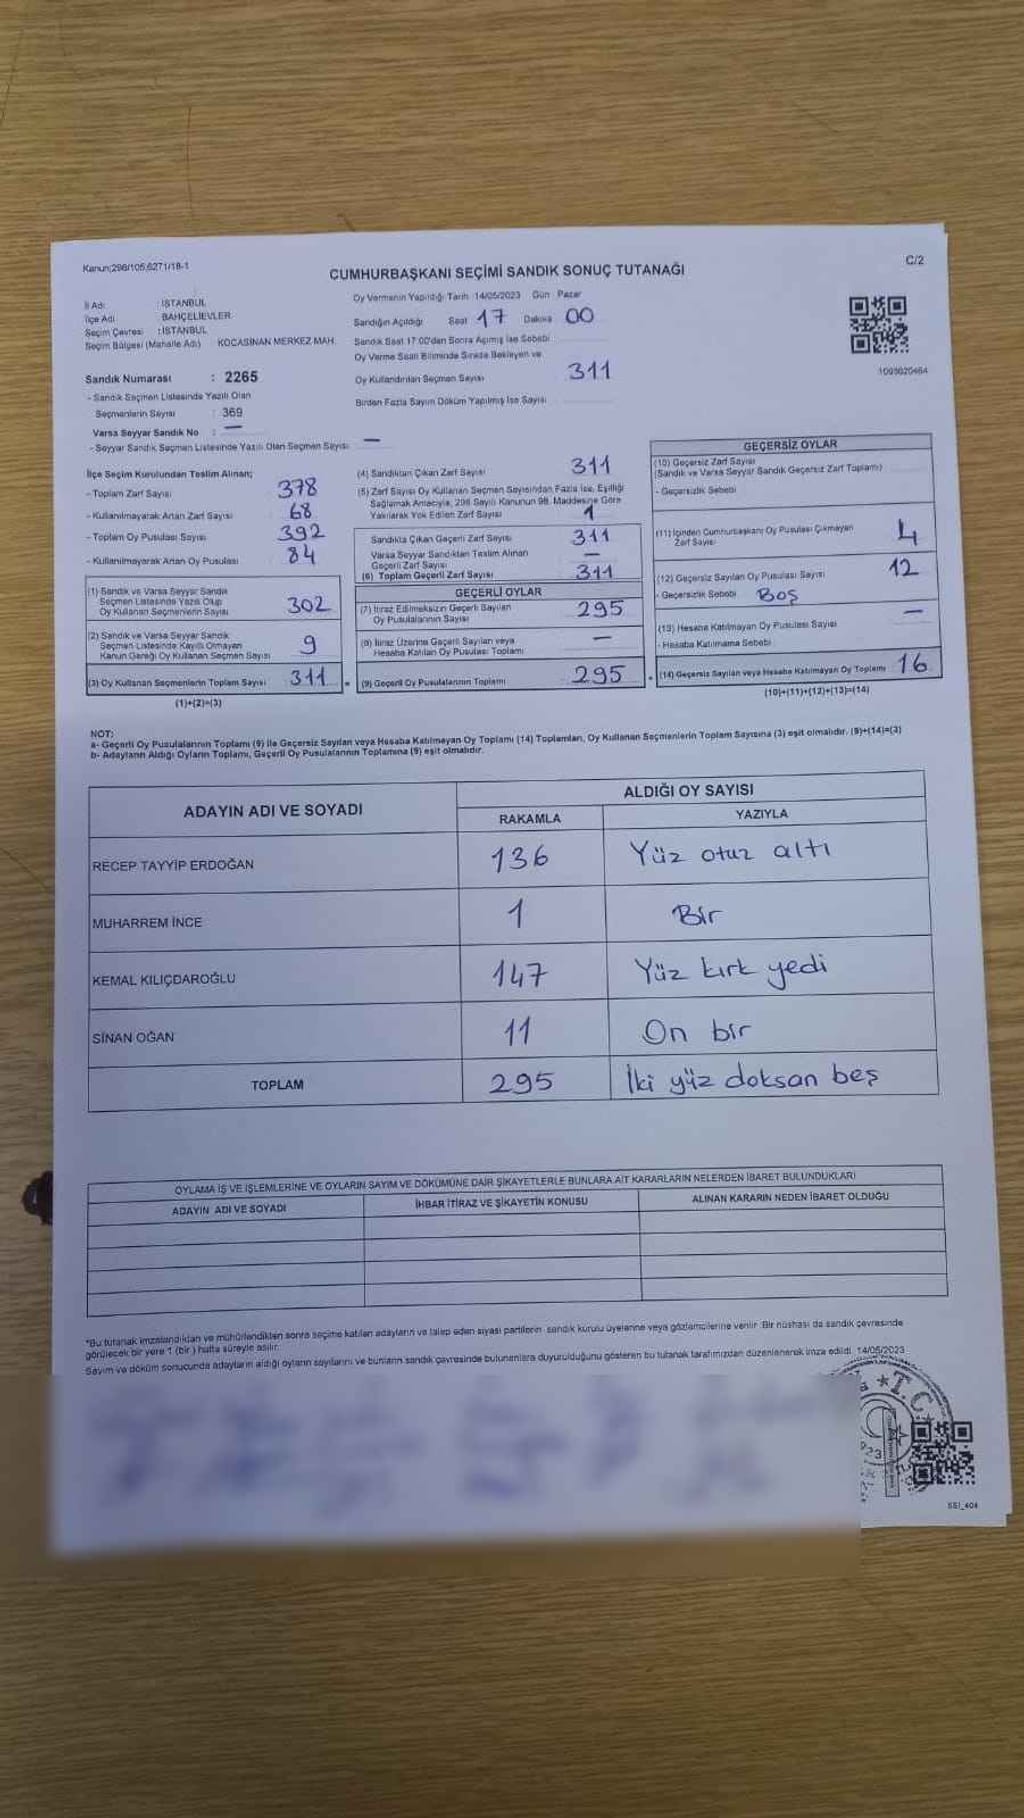 Kanun;298/105,6271/18-1
C/2
CUMHURBAŞKANI SEÇİMİ SANDIK SONUÇ TUTANAĞI
İl Adı : İSTANBUL
İlçe Adı BAHÇELİEVLER
Seçim Çevresi : İSTANBUL
Seçim Bölgesi (Mahalle Adı) KOCASİNAN MERKEZ MAH.
Sandık Numarası : 2265
- Sandık Seçmen Listesinde Yazılı Olan
Seçmenlerin Sayısı : 369
Varsa Seyyar Sandık No : —
- Seyyar Sandık Seçmen Listesinde Yazılı Olan Seçmen Sayısı —
Oy Vermenin Yapıldığı Tarih 14/05/2023 Gün Pazar
Sandığın Açıldığı Saat 17 Dakika 00
Sandık Saat 17:00'dan Sonra Açılmış İse Sebebi
Oy Verme Saati Bitiminde Sırada Bekleyen ve
Oy Kullandırılan Seçmen Sayısı 311
Birden Fazla Sayım Döküm Yapılmış İse Sayısı
1093620464
İlçe Seçim Kurulundan Teslim Alınan;
- Toplam Zarf Sayısı 378
- Kullanılmayarak Artan Zarf Sayısı 68
- Toplam Oy Pusulası Sayısı 392
- Kullanılmayarak Artan Oy Pusulası 84
(1) Sandık ve Varsa Seyyar Sandık
Seçmen Listesinde Yazılı Olup
Oy Kullanan Seçmenlerin Sayısı 302
(2) Sandık ve Varsa Seyyar Sandık
Seçmen Listesinde Kayıtlı Olmayan
Kanun Gereği Oy Kullanan Seçmen Sayısı 9
(3) Oy Kullanan Seçmenlerin Toplam Sayısı 311
(1)+(2)=(3)
(4) Sandıktan Çıkan Zarf Sayısı 311
(5) Zarf Sayısı Oy Kullanan Seçmen Sayısından Fazla İse, Eşitliği
Sağlamak Amacıyla, 298 Sayılı Kanunun 98. Maddesine Göre
Yakılarak Yok Edilen Zarf Sayısı 1
Sandıkta Çıkan Geçerli Zarf Sayısı 311
Varsa Seyyar Sandıktan Teslim Alınan
Geçerli Zarf Sayısı —
(6) Toplam Geçerli Zarf Sayısı 311
GEÇERLİ OYLAR
(7) İtiraz Edilmeksizin Geçerli Sayılan
Oy Pusulalarının Sayısı 295
(8) İtiraz Üzerine Geçerli Sayılan veya
Hesaba Katılan Oy Pusulası Toplamı —
(9) Geçerli Oy Pusulalarının Toplamı 295
GEÇERSİZ OYLAR
(10) Geçersiz Zarf Sayısı
(Sandık ve Varsa Seyyar Sandık Geçersiz Zarf Toplamı)
- Geçersizlik Sebebi
(11) İçinden Cumhurbaşkanı Oy Pusulası Çıkmayan
Zarf Sayısı 4
(12) Geçersiz Sayılan Oy Pusulası Sayısı 12
- Geçersizlik Sebebi Boş
(13) Hesaba Katılmayan Oy Pusulası Sayısı —
- Hesaba Katılmama Sebebi
(14) Geçersiz Sayılan veya Hesaba Katılmayan Oy Toplamı 16
(10)+(11)+(12)+(13)=(14)
NOT:
a- Geçerli Oy Pusulalarının Toplamı (9) ile Geçersiz Sayılan veya Hesaba Katılmayan Oy Toplamı (14) Toplamları, Oy Kullanan Seçmenlerin Toplam Sayısına (3) eşit olmalıdır. (9)+(14)=(3)
b- Adayların Aldığı Oyların Toplamı, Geçerli Oy Pusulalarının Toplamına (9) eşit olmalıdır.
ADAYIN ADI VE SOYADI
ALDIĞI OY SAYISI
RAKAMLA YAZIYLA
RECEP TAYYİP ERDOĞAN 136 Yüz otuz altı
MUHARREM İNCE 1 Bir
KEMAL KILIÇDAROĞLU 147 Yüz kırk yedi
SİNAN OĞAN 11 On bir
TOPLAM 295 İki yüz doksan beş
OYLAMA İŞ VE İŞLEMLERİNE VE OYLARIN SAYIM VE DÖKÜMÜNE DAİR ŞİKAYETLERLE BUNLARA AİT KARARLARIN NELERDEN İBARET BULUNDUKLARI
ADAYIN ADI VE SOYADI İHBAR İTİRAZ VE ŞİKAYETİN KONUSU ALINAN KARARIN NEDEN İBARET OLDUĞU
*Bu tutanak imzalandıktan ve mühürlendikten sonra seçime katılan adayların ve talep eden siyasi partilerin sandık kurulu üyelerine veya gözlemcilerine verilir. Bir nüshası da sandık çevresinde
görülecek bir yere 1 (bir) hafta süreyle asılır.
Sayım ve döküm sonucunda adayların aldığı oyların sayılarını ve bunların sandık çevresinde bulunanlara duyurulduğunu gösteren bu tutanak tarafımızdan düzenlenerek imza edildi. 14/05/2023
T.C.
SSI_404